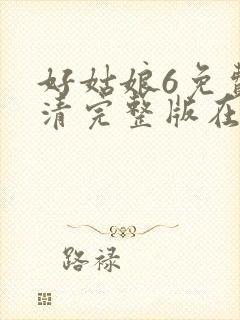 好姑娘6免费
清完整版在
路禄